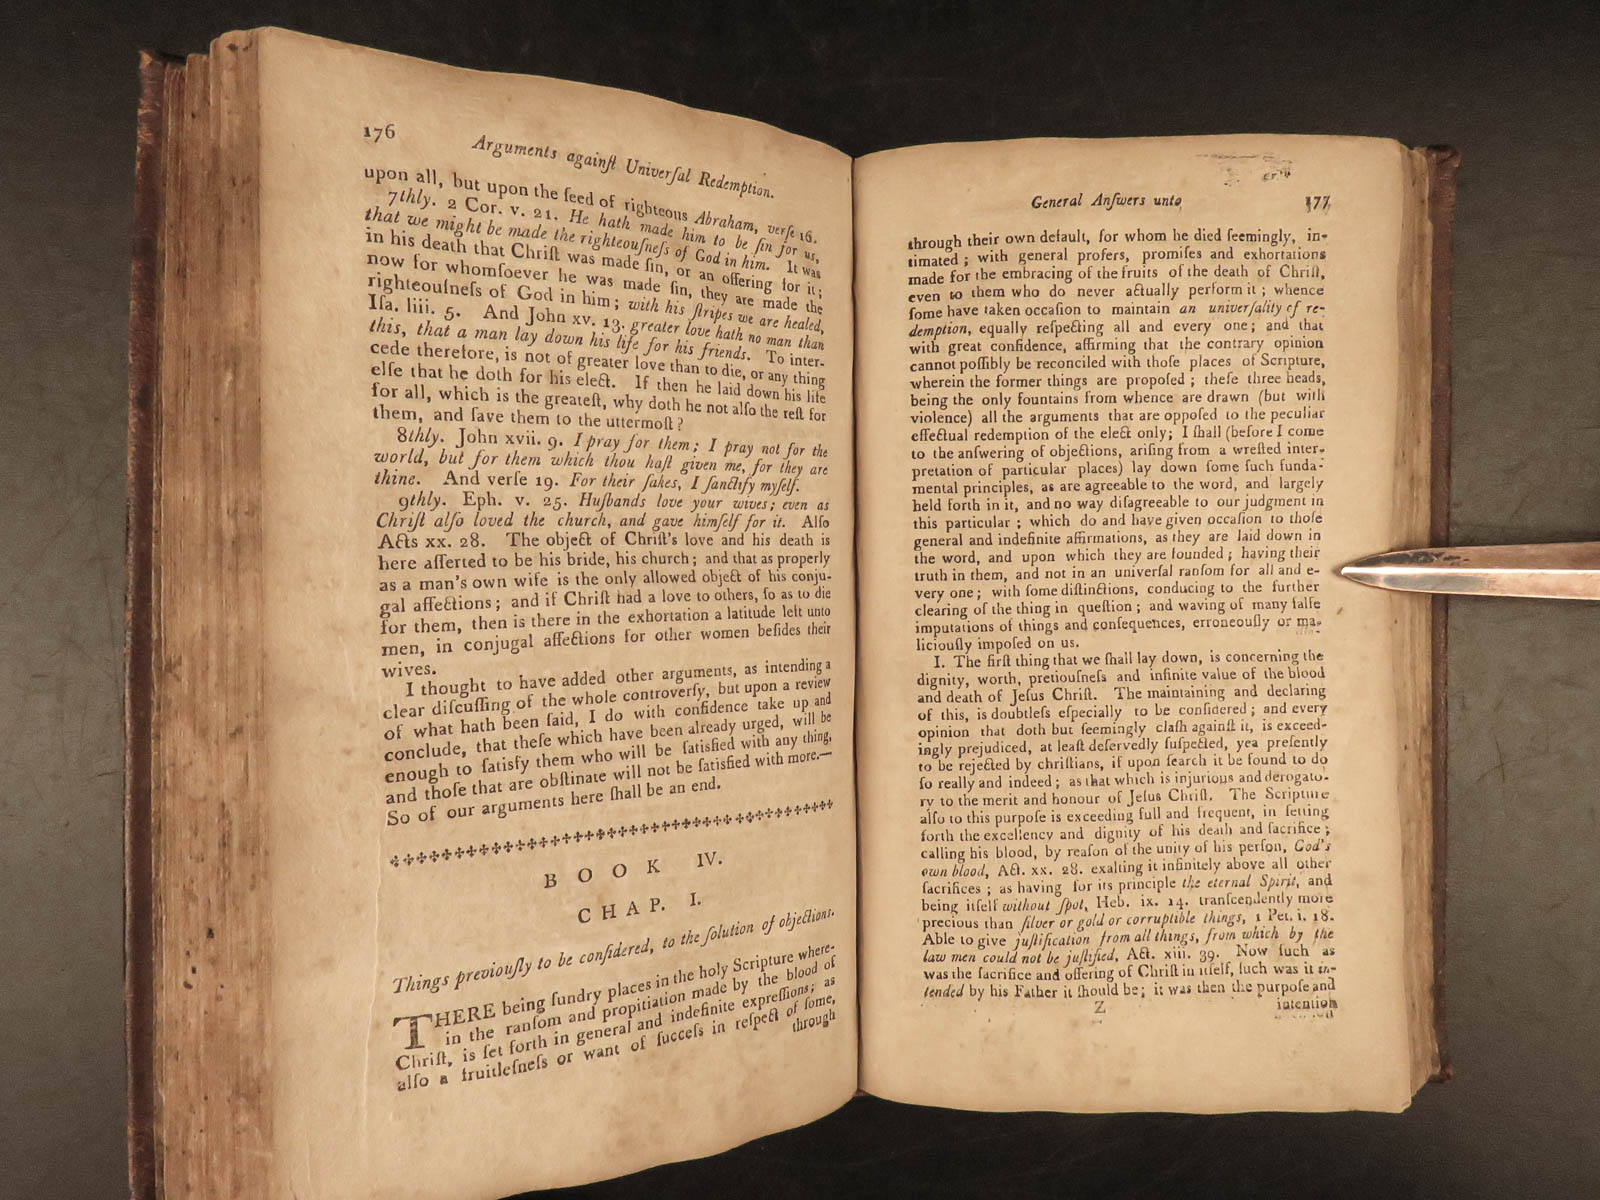 176
Arguments againſt Univerſal Redemption.
upon all, but upon the ſeed of righteous Abraham, verſe 16.
7thly. 2 Cor. v. 21. He hath made him to be ſin for us,
that we might be made the righteouſneſs of God in him. It was
in his death that Chriſt was made ſin, or an offering for it;
now for whomſoever he was made ſin, they are made the
righteouſneſs of God in him; with his ſtripes we are healed,
Iſa. liii. 5. And John xv. 13. greater love hath no man than
this, that a man lay down his life for his friends. To inter-
cede therefore, is not of greater love than to die, or any thing
elſe that he doth for his elect. If then he laid down his life
for all, which is the greateſt, why doth he not alſo the reſt for
them, and ſave them to the uttermoſt?
8thly. John xvii. 9. I pray for them; I pray not for the
world, but for them which thou haſt given me, for they are
thine. And verſe 19. For their ſakes, I ſanctify myſelf.
9thly. Eph. v. 25. Huſbands love your wives; even as
Chriſt alſo loved the church, and gave himſelf for it. Alſo
Acts xx. 28. The object of Chriſt's love and his death is
here aſſerted to be his bride, his church; and that as properly
as a man's own wife is the only allowed object of his conju-
gal affections; and if Chriſt had a love to others, ſo as to die
for them, then is there in the exhortation a latitude left unto
men, in conjugal affections for other women beſides their
wives.
I thought to have added other arguments, as intending a
clear diſcuſſing of the whole controverſy, but upon a review
of what hath been ſaid, I do with confidence take up and
conclude, that theſe which have been already urged, will be
enough to ſatisfy them who will be ſatisfied with any thing,
and thoſe that are obſtinate will not be ſatisfied with more.—
So of our arguments here ſhall be an end.
BOOK IV.
CHAP. I.
Things previouſly to be conſidered, to the ſolution of objections.
THERE being ſundry places in the holy Scripture where-
in the ranſom and propitiation made by the blood of
Chriſt, is ſet forth in general and indefinite expreſſions; as
alſo a fruitleſneſs or want of ſucceſs in reſpect of ſome,
through
General Anſwers unto
177
through their own default, for whom he died ſeemingly, in-
timated; with general profers, promiſes and exhortations
made for the embracing of the fruits of the death of Chriſt,
even to them who do never actually perform it; whence
ſome have taken occaſion to maintain an univerſality of re-
demption, equally reſpecting all and every one; and that
with great confidence, affirming that the contrary opinion
cannot poſſibly be reconciled with thoſe places of Scripture,
wherein the former things are propoſed; theſe three heads,
being the only fountains from whence are drawn (but with
violence) all the arguments that are oppoſed to the peculiar
effectual redemption of the elect only; I ſhall (before I come
to the anſwering of objections, ariſing from a wreſted inter-
pretation of particular places) lay down ſome ſuch funda-
mental principles, as are agreeable to the word, and largely
held forth in it, and no way diſagreeable to our judgment in
this particular; which do and have given occaſion to thoſe
general and indefinite affirmations, as they are laid down in
the word, and upon which they are founded; having their
truth in them, and not in an univerſal ranſom for all and e-
very one; with ſome diſtinctions, conducing to the further
clearing of the thing in queſtion; and waving of many falſe
imputations of things and conſequences, erroneouſly or ma-
liciouſly impoſed on us.
I. The firſt thing that we ſhall lay down, is concerning the
dignity, worth, pretiouſneſs and infinite value of the blood
and death of Jeſus Chriſt. The maintaining and declaring
of this, is doubtleſs eſpecially to be conſidered; and every
opinion that doth but ſeemingly claſh againſt it, is exceed-
ingly prejudiced, at leaſt deſervedly ſuſpected, yea preſently
to be rejected by chriſtians, if upon ſearch it be found to do
ſo really and indeed; as that which is injurious and derogato-
ry to the merit and honour of Jeſus Chriſt. The Scripture
alſo to this purpoſe is exceeding full and frequent, in ſetting
forth the excellency and dignity of his death and ſacrifice;
calling his blood, by reaſon of the unity of his perſon, God's
own blood, Act. xx. 28. exalting it infinitely above all other
ſacrifices; as having for its principle the eternal Spirit, and
being itſelf without ſpot, Heb. ix. 14. tranſcendently more
precious than ſilver or gold or corruptible things, 1 Pet. i. 18.
Able to give juſtification from all things, from which by the
law men could not be juſtified, Act. xiii. 39. Now ſuch as
was the ſacrifice and offering of Chriſt in itſelf, ſuch was it in-
tended by his Father it ſhould be; it was then the purpoſe and
Z
intention